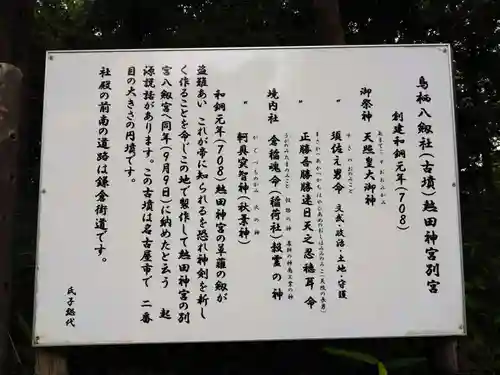 鳥栖八劔社(古墳)熱田神宮別宮
創建和銅元年(708)
御祭神 天照皇大御神
〃 須佐之男命 主武・政治・土地・守護
〃 正勝吾勝勝速日天之忍穂耳命
境内社 倉稲魂命(稲荷社)穀霊の神
〃 軻具突智神(秋葉神)
和銅元年(708)熱田神宮の草薙の劔が
盗難あい これが帝に知られるを恐れ神剣を新し
く作ることを命じこの地で製作して熱田神宮の別
宮八劔宮へ同年(9月9日)に納めたと云う 起
源説話があります。この古墳は名古屋市で 二番
目の大きさの円墳です。
社殿の前南の道路は鎌倉街道です。
氏子総代